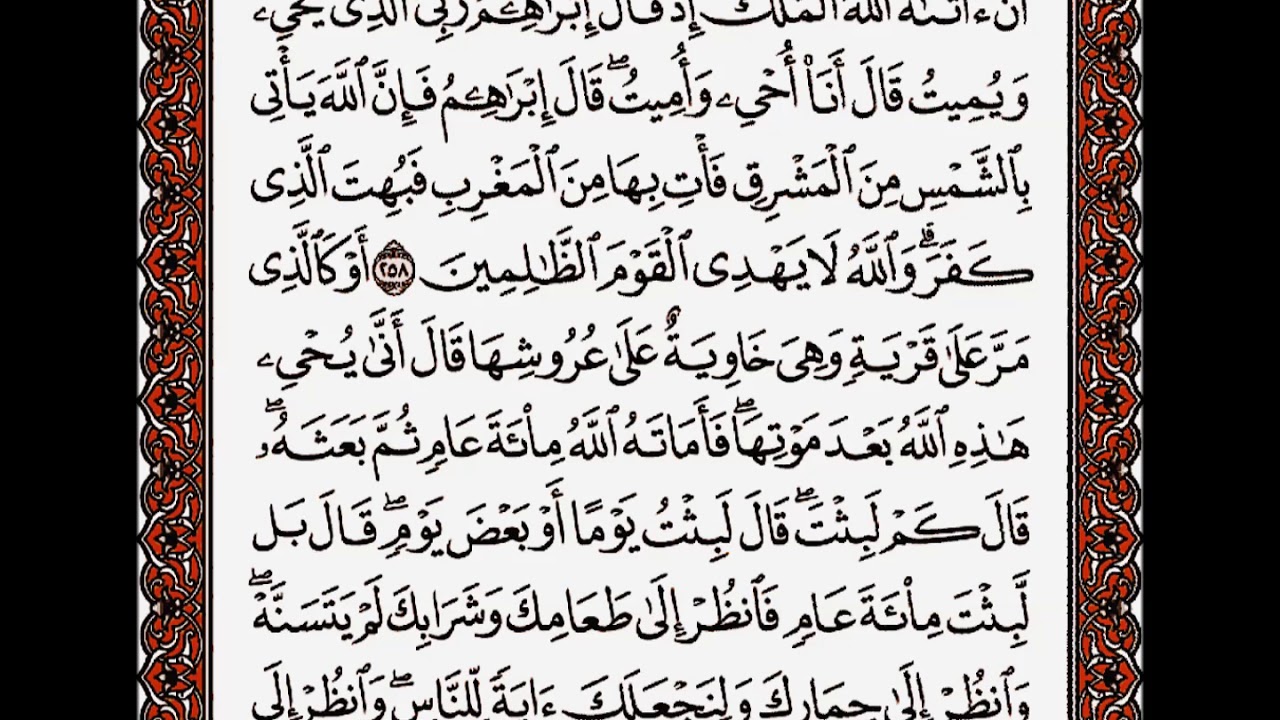 أَنْ ءَاتَىٰهُ ٱللَّهُ ٱلْمُلْكَ إِذْ قَالَ إِبْرَٰهِـۧمُ رَبِّىَ ٱلَّذِى يُحْىِۦ
وَيُمِيتُ قَالَ أَنَا۠ أُحْىِۦ وَأُمِيتُ ۖ قَالَ إِبْرَٰهِـۧمُ فَإِنَّ ٱللَّهَ يَأْتِى
بِٱلشَّمْسِ مِنَ ٱلْمَشْرِقِ فَأْتِ بِهَا مِنَ ٱلْمَغْرِبِ فَبُهِتَ ٱلَّذِى
كَفَرَ ۗ وَٱللَّهُ لَا يَهْدِى ٱلْقَوْمَ ٱلظَّٰلِمِينَ ٢٥٨ أَوْ كَٱلَّذِى
مَرَّ عَلَىٰ قَرْيَةٍ وَهِىَ خَاوِيَةٌ عَلَىٰ عُرُوشِهَا قَالَ أَنَّىٰ يُحْىِۦ
هَٰذِهِ ٱللَّهُ بَعْدَ مَوْتِهَا ۖ فَأَمَاتَهُ ٱللَّهُ مِا۟ئَةَ عَامٍ ثُمَّ بَعَثَهُۥ ۖ
قَالَ كَمْ لَبِثْتَ ۖ قَالَ لَبِثْتُ يَوْمًا أَوْ بَعْضَ يَوْمٍ ۖ قَالَ بَل
لَّبِثْتَ مِا۟ئَةَ عَامٍ فَٱنظُرْ إِلَىٰ طَعَامِكَ وَشَرَابِكَ لَمْ يَتَسَنَّهْ ۖ
وَٱنظُرْ إِلَىٰ حِمَارِكَ وَلِنَجْعَلَكَ ءَايَةً لِّلنَّاسِ ۖ وَٱنظُرْ إِلَى